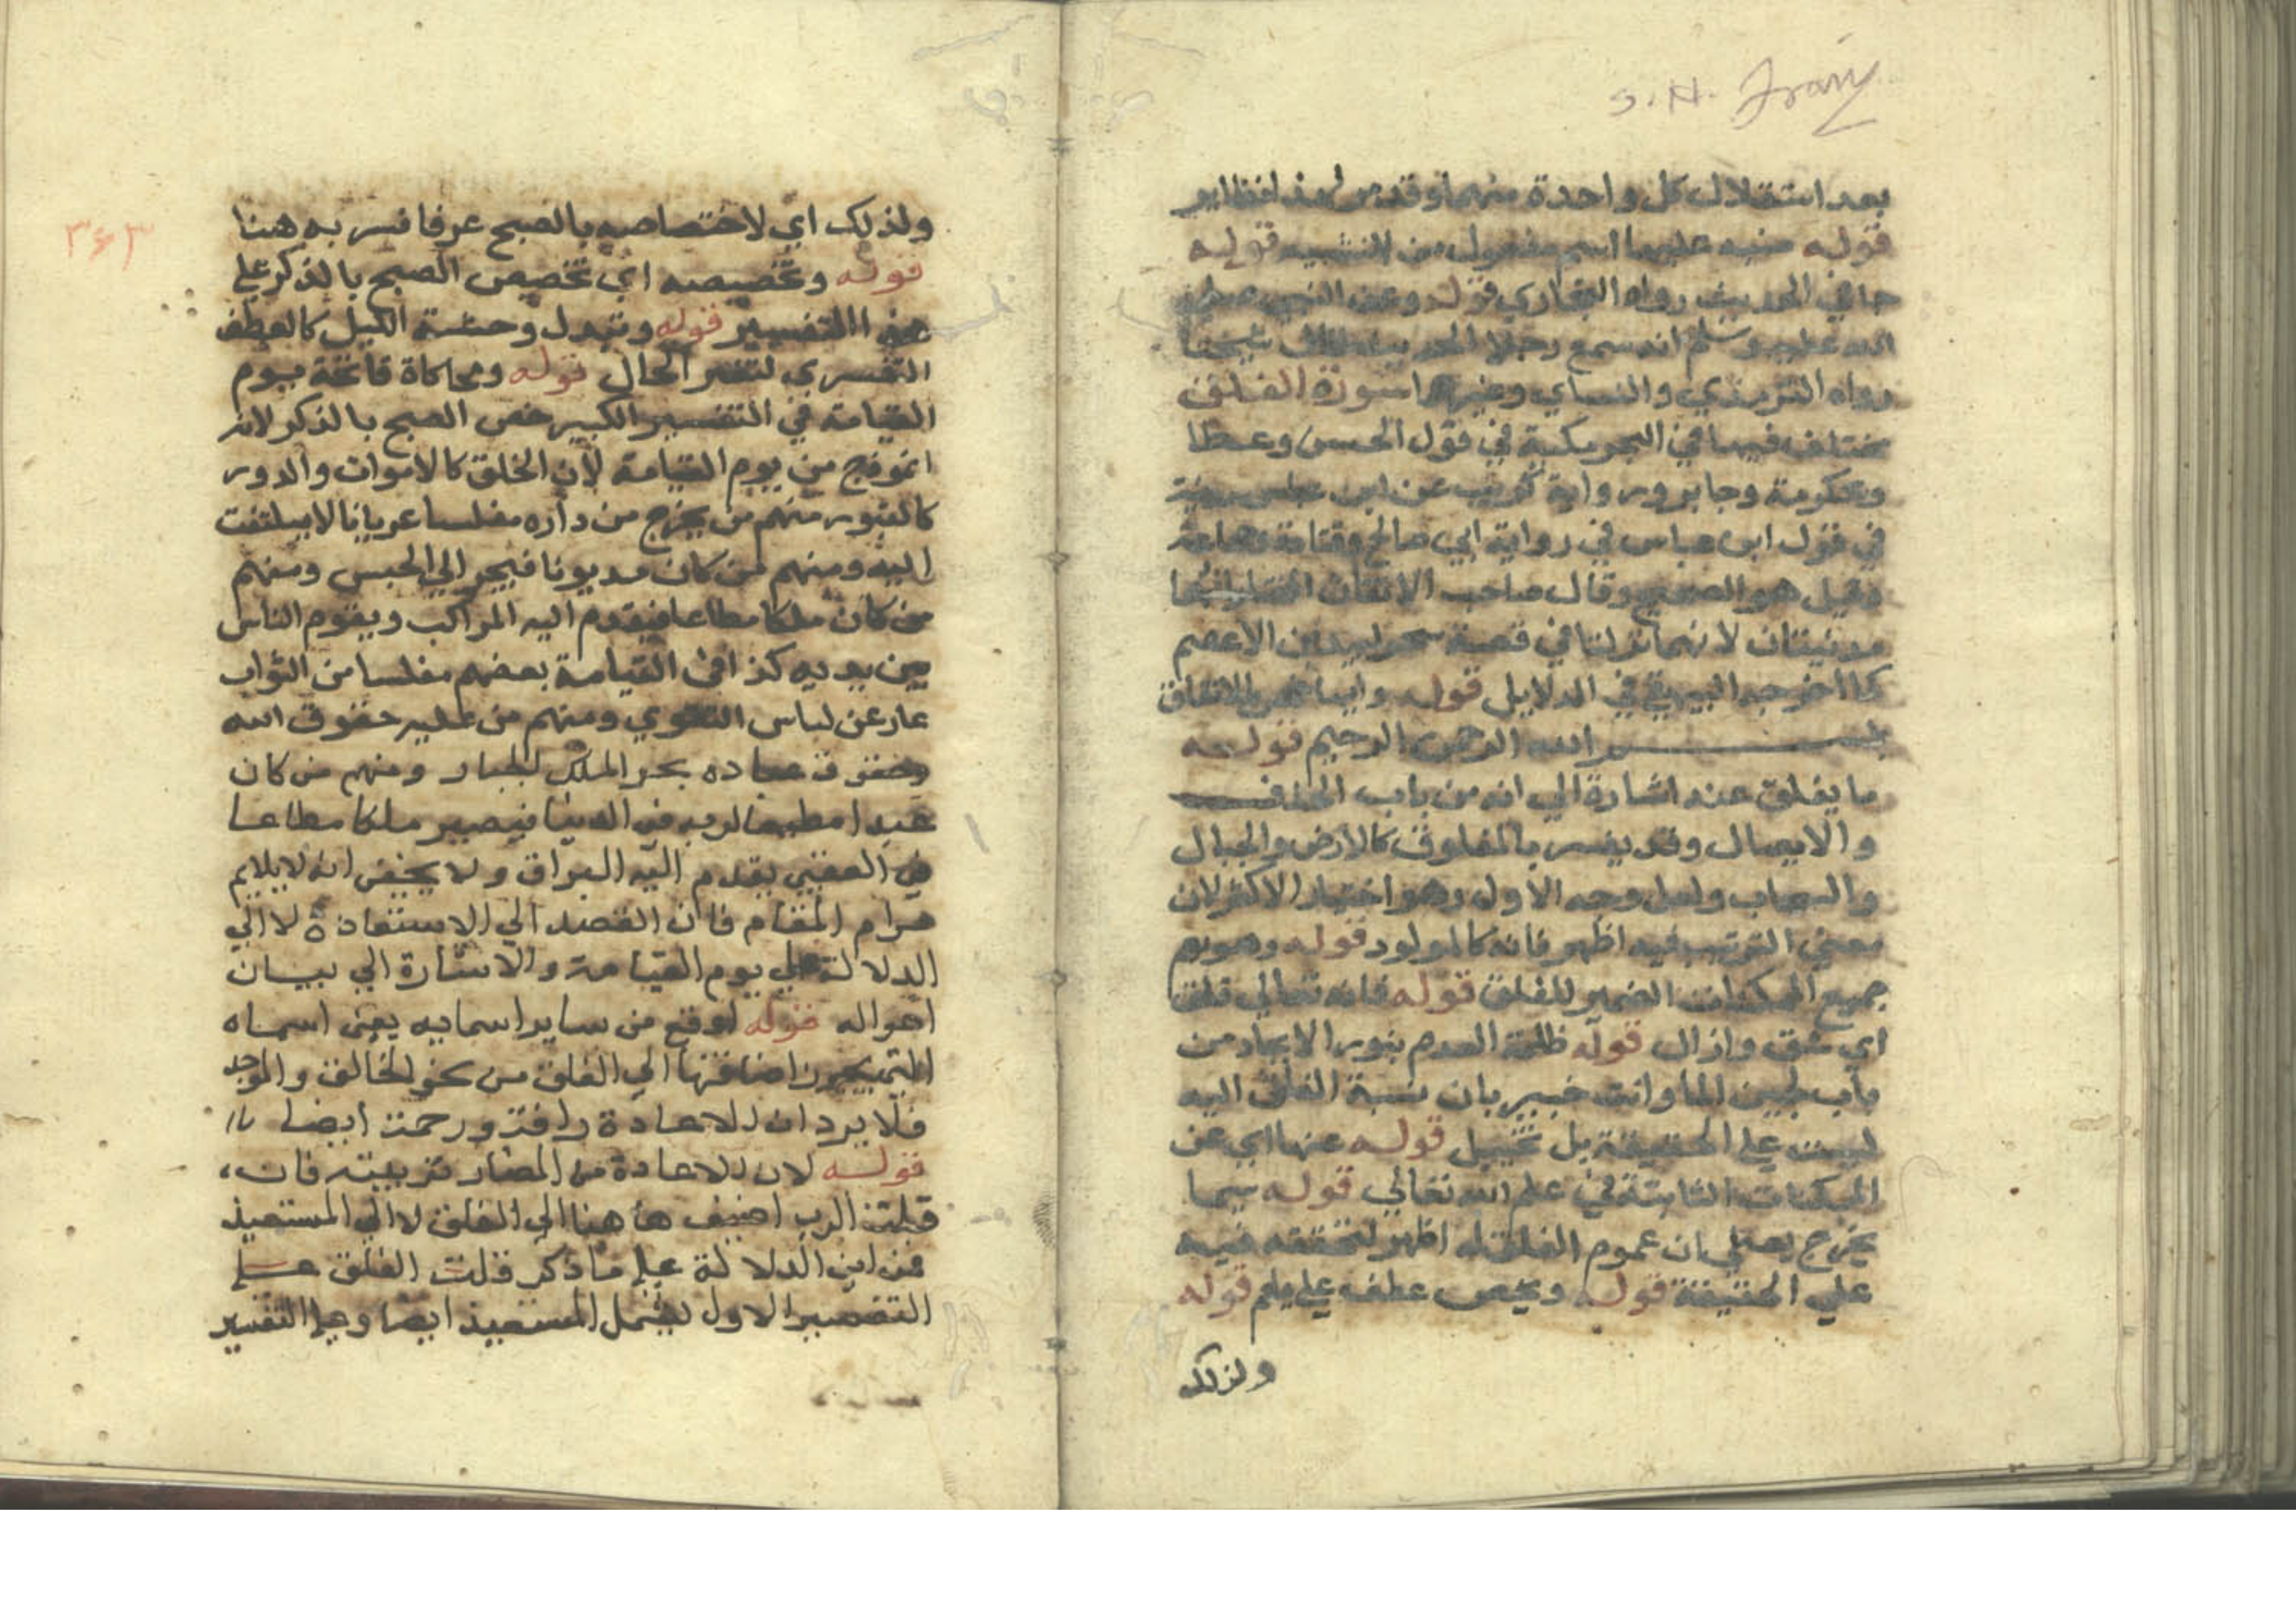 S. H.
بعد استقلال كل واحدة منهما وقد مر
قوله منبه عليهما اسم مفعول من التنبيه قوله
جا في الحديث رواه البخاري قوله وعن النبي صلى
الله عليه وسلم انه سمع رجلا الحديث قال شيخنا
رواه الترمذي والنساي وغيرهما سورة الفلق
مختلف فيها في البحر مكية في قول الحسن وعطا
وعكرمة وجابر ورواية كريب عن ابن عباس مدنية
في قول ابن عباس في رواية ابي صالح وقتادة وجماعة
وقيل هو الصحيح وقال صاحب الاتقان المختار انهما
مدنيتان لانهما نزلتا في قصة سحر لبيد بن الاعصم
كما اخرجه البيهقي في الدلايل قوله وايها خمس بالاتفاق
بسم الله الرحمن الرحيم قوله
ما يفلق عنه اشارة الي انه من باب الحذف
والايصال وقد يفسر بالمفلوق كالارض والجبال
والسحاب ولعل وجه الاول وهو اختيار الاكثر لان
معني الترتيب فيه اظهر فانه كالمولود قوله وهو يعم
جميع الممكنات الضمير للفلق قوله فانه تعالي فلق
اي شق وازال قوله ظلمة العدم بنور الايجاد من
باب لجين الما وانت خبير بان نسبة الفلق اليه
ليست علي الحقيقة بل تخييل قوله عنها اي عن
الممكنات الثابتة في علم الله تعالي قوله سيما
يخرج يعني ان عموم الفلق له اظهر لتحققه فيه
علي الحقيقة قوله ويخص عطف علي يعم قوله
ولذلك
٣٤٣
ولذلك اي لاختصاصه بالصبح عرفا فسر به هنا
قوله وتخصيصه اي تخصيص الصبح بالذكر علي
هذا التفسير قوله وتبدل وحشة الليل كالعطف
التفسيري لتغير الحال قوله ومحاكاة فاتحة يوم
القيامة في التفسير الكبير خص الصبح بالذكر لانه
انموذج من يوم القيامة لان الخلق كالاموات والدور
كالقبور منهم من يخرج من داره مفلسا عريانا لا يلتفت
اليه ومنهم من كان مديونا فيجر الي الحبس ومنهم
من كان ملكا مطاعا فيقدم اليه المراكب ويقوم الناس
بين يديه كذا في القيامة بعضهم مفلسا من الثواب
عار عن لباس التقوي ومنهم من عليه حقوق الله
وحقوق عباده يجر الملك الجبار ومنهم من كان
عبدا مطيعا لربه في الدنيا فيصير ملكا مطاعا
في العقبي يقدم اليه البراق ولا يخفي انه لا يلايم
مرام المقام فان القصد الي الاستعاذة لا الي
الدلالة علي يوم القيامة والاشارة الي بيان
احواله قوله اوقع من ساير اسمايه يعني اسماه
التي يجوز اضافتها الي الفلق من نحو الخالق والموجد
فلا يرد ان للاعاذة رافة ورحمة ايضا
قوله لان الاعاذة من المضار تربيته فان
قلت الرب اضيف هاهنا الي الفلق لا الي المستعيذ
فمن اين الدلالة علي ما ذكر قلت الفلق علي
التفسير الاول يشمل المستعيذ ايضا وعلي التفسير